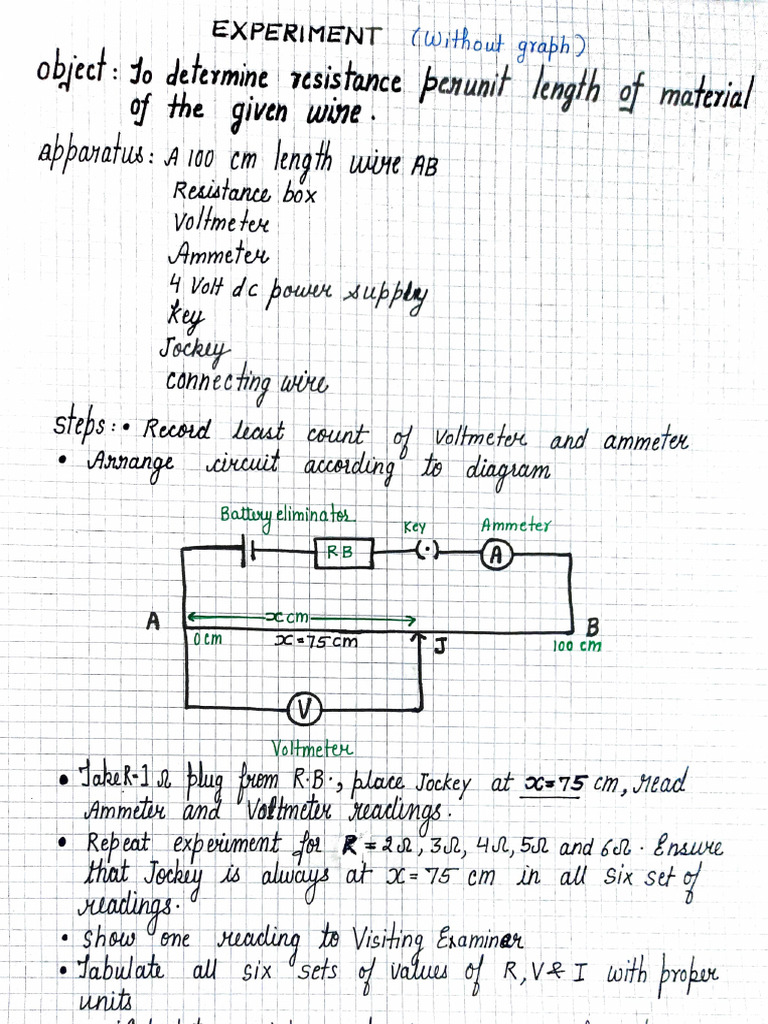 EXPERIMENT (Without graph)
object: To determine resistance per unit length of material
of the given wire.
apparatus: A 100 cm length wire AB
Resistance box
Voltmeter
Ammeter
4 Volt dc power supply
Key
Jockey
connecting wire
steps: • Record least count of voltmeter and ammeter
• Arrange circuit according to diagram
Battery eliminator Key Ammeter
R B (·) A
x cm
A B
0 cm x = 75 cm J 100 cm
V
Voltmeter
• Take R-1 Ω plug from R.B., place Jockey at x=75 cm, read
Ammeter and Voltmeter readings.
• Repeat experiment for R = 2Ω, 3Ω, 4Ω, 5Ω and 6Ω. Ensure
that Jockey is always at x = 75 cm in all six set of
readings.
• Show one reading to Visiting Examiner
• Tabulate all six sets of values of R, V & I with proper
units